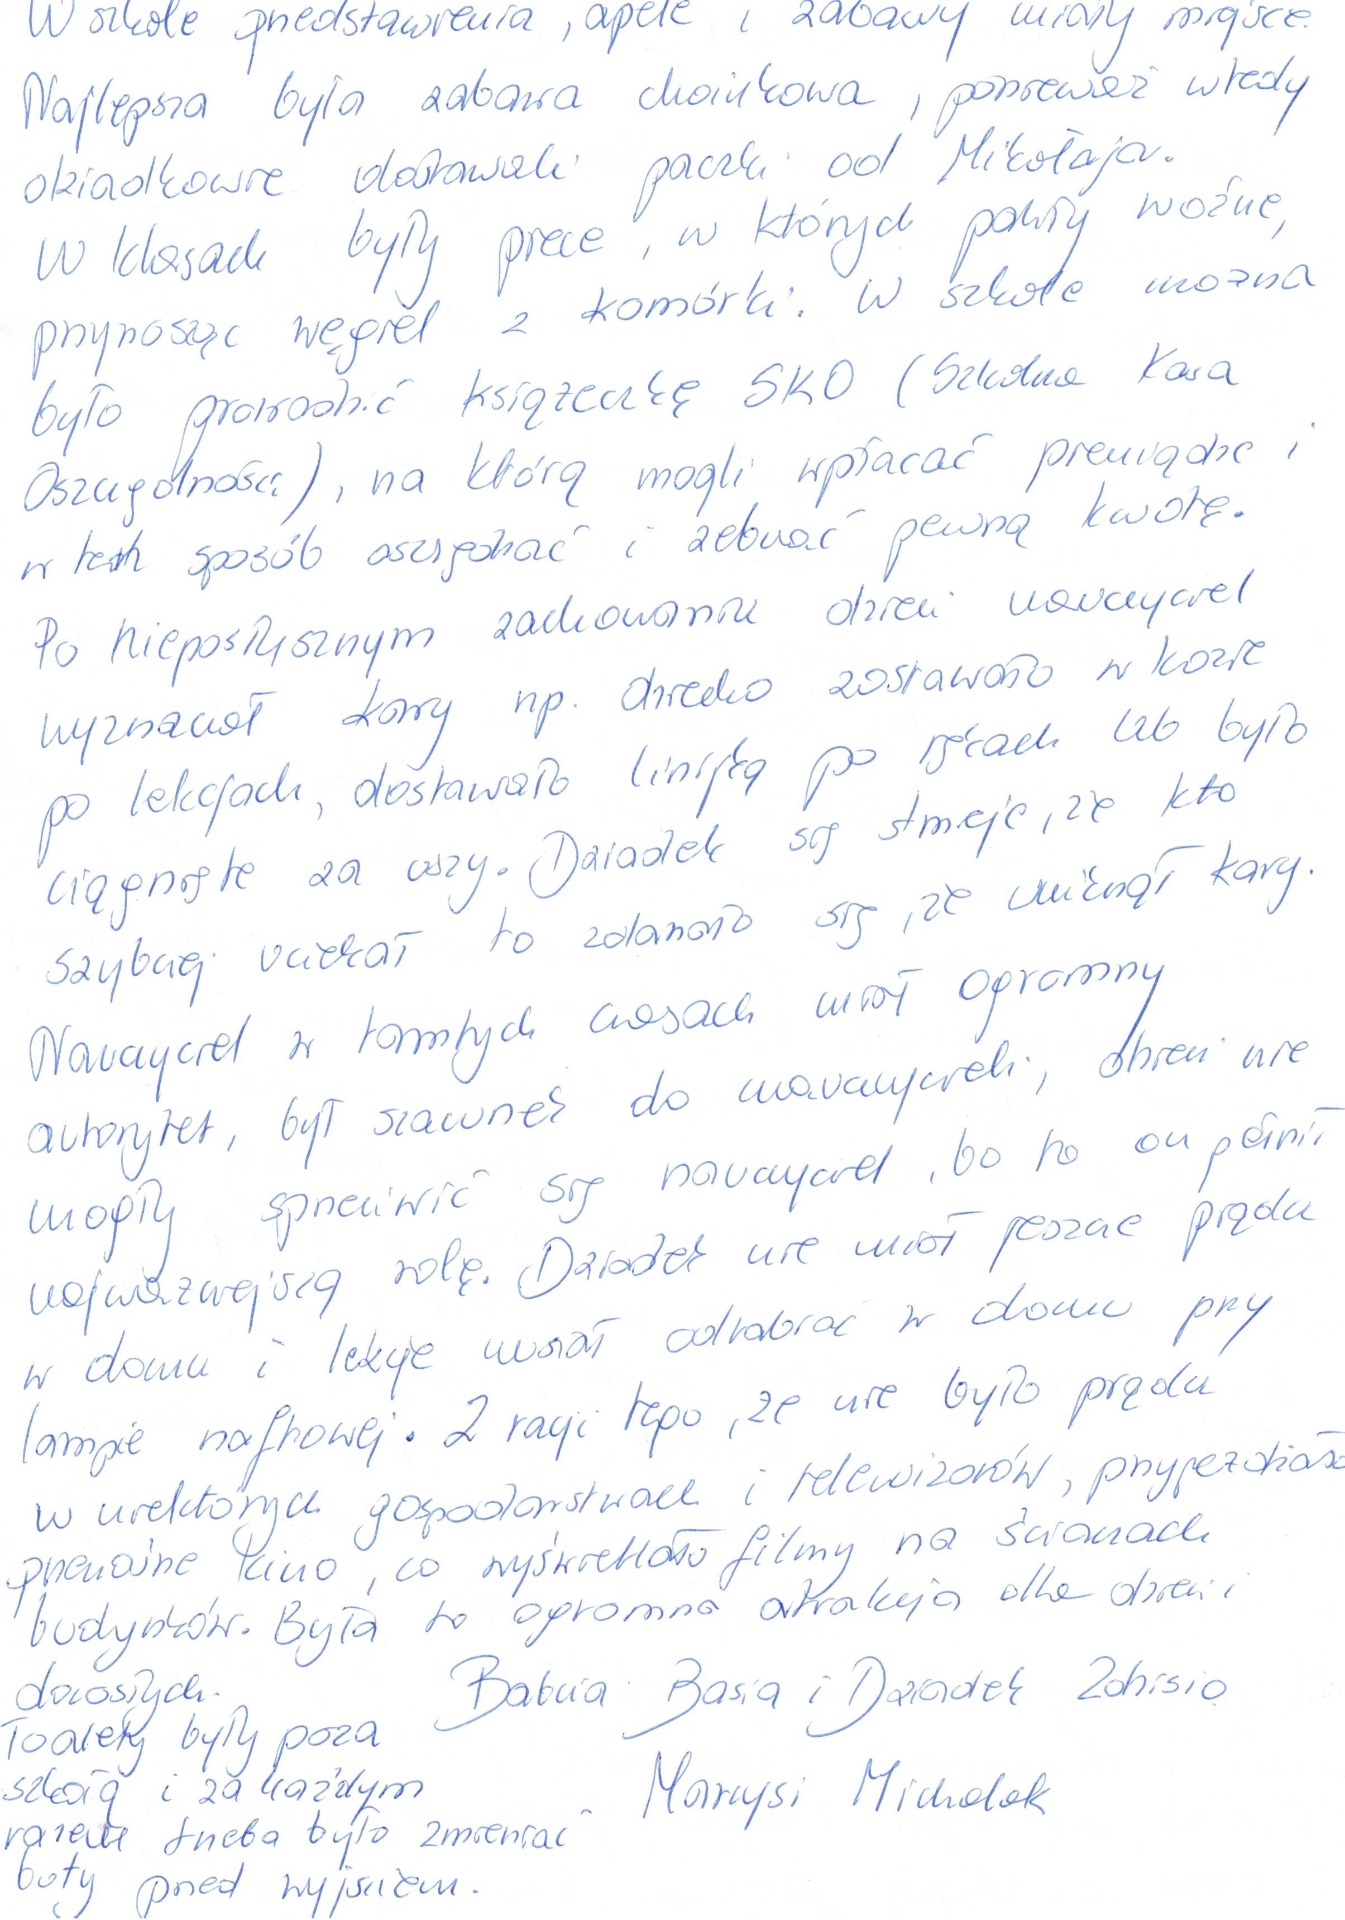 W szkole przedstawienia, apele i zabawy miały miejsce.
Najlepsza była zabawa choinkowa, ponieważ wtedy
dziadkowie dostawali paczki od Mikołaja.
W klasach były piece, w których paliły woźne,
przynosząc węgiel z komórki. W szkole można
było prowadzić książeczkę SKO (Szkolna Kasa
Oszczędności), na którą mogli wpłacać pieniądze i
w ten sposób oszczędzać i zebrać pewną kwotę.
Po nieposłusznym zachowaniu dzieci nauczyciel
wyznaczał kary np. dziecko zostawało w kozie
po lekcjach, dostawało linijką po rękach lub było
ciągnięte za uszy. Dziadek się śmieje, że kto
szybciej uciekał to zdarzało się, że uniknął kary.
Nauczyciel w tamtych czasach miał ogromny
autorytet, był szacunek do nauczycieli, dzieci nie
mogły sprzeciwić się nauczyciel, bo to on pełnił
najważniejszą rolę. Dziadek nie miał jeszcze prądu
w domu i lekcje musiał odrabiać w domu przy
lampie naftowej. Z racji tego, że nie było prądu
w niektórych gospodarstwach i telewizorów, przyjeżdżało
przenośne kino, co wyświetlało filmy na ścianach
budynków. Była to ogromna atrakcja dla dzieci i
dorosłych.
Babcia Basia i Dziadek Zdzisio
Marysi Michalak
Toalety były poza
szkołą i za każdym
razem trzeba było zmieniać
buty przed wyjściem.